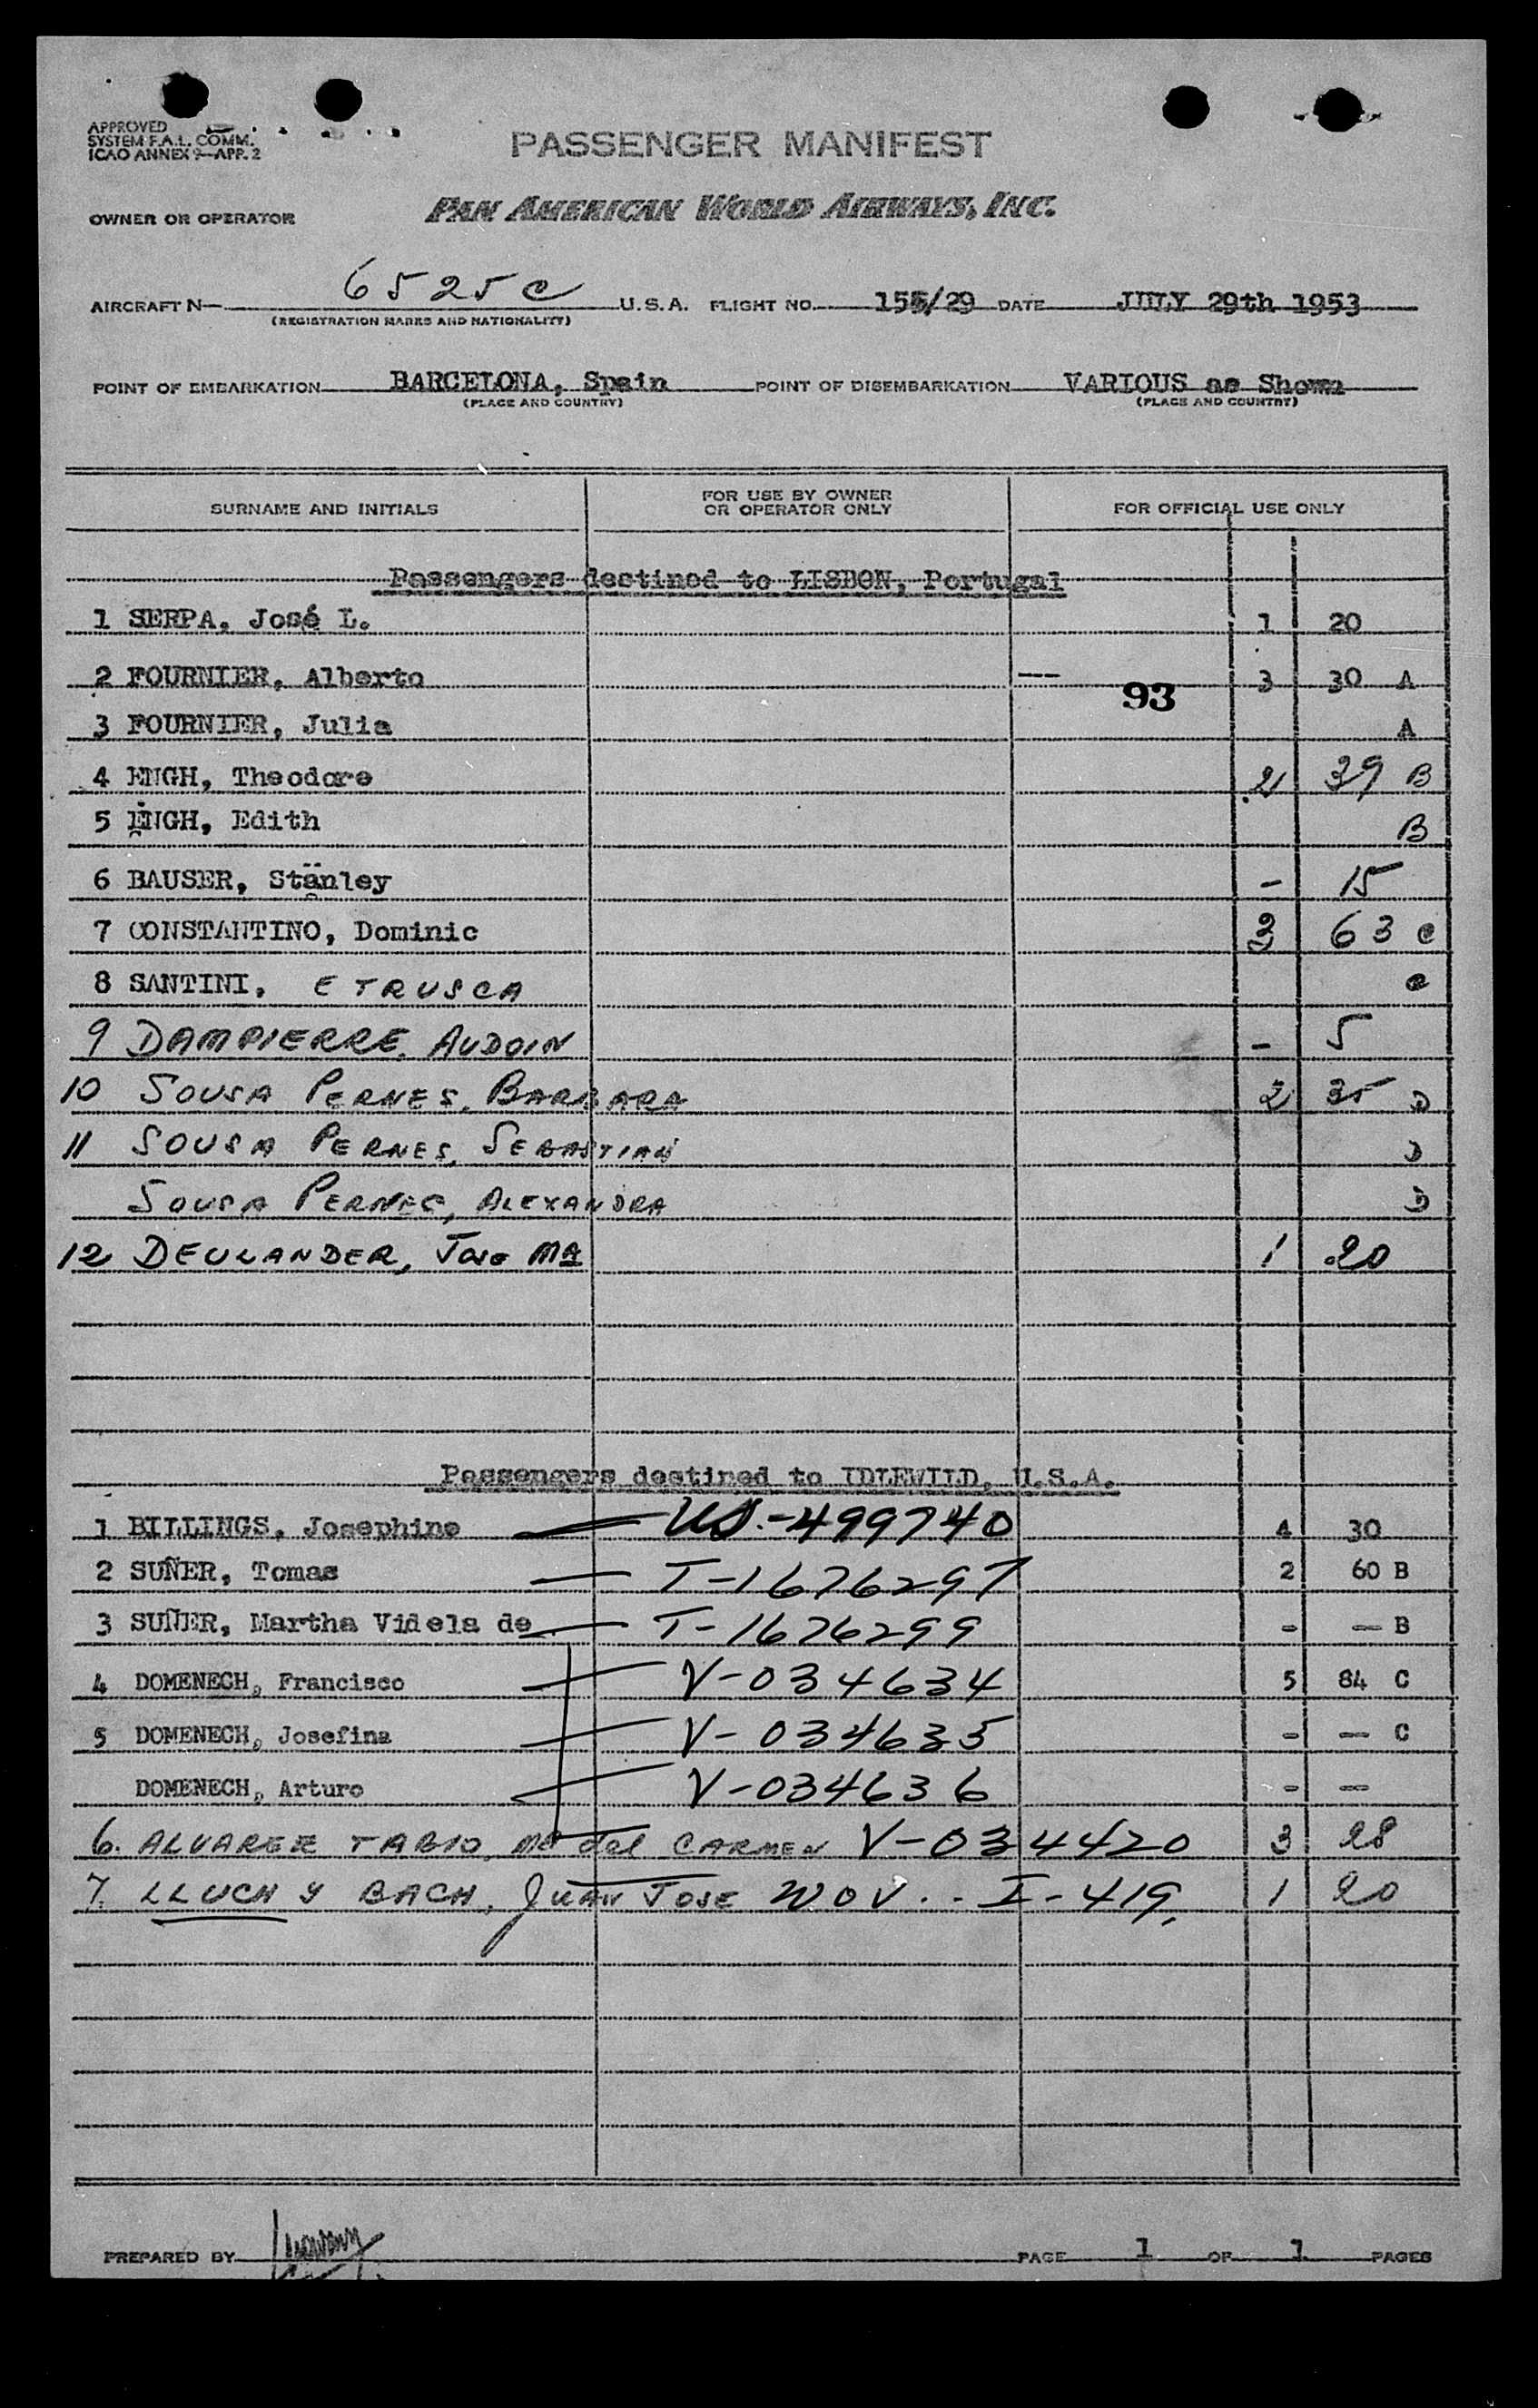 APPROVED
SYSTEM F.A.L. COMM.
ICAO ANNEX 9—APP. 2
PASSENGER MANIFEST
OWNER OR OPERATOR PAN AMERICAN WORLD AIRWAYS, INC.
AIRCRAFT N— 6525C U.S.A. FLIGHT NO. 155/29 DATE JULY 29th 1953
(REGISTRATION MARKS AND NATIONALITY)
POINT OF EMBARKATION BARCELONA, Spain POINT OF DISEMBARKATION VARIOUS as Shown
(PLACE AND COUNTRY) (PLACE AND COUNTRY)
SURNAME AND INITIALS FOR USE BY OWNER OR OPERATOR ONLY FOR OFFICIAL USE ONLY
Passengers destined to LISBON, Portugal
1 SERPA, José L. 1 20
2 FOURNIER, Alberto --- 3 30 A
93
3 FOURNIER, Julia A
4 ENGH, Theodore 2 39 B
5 ENGH, Edith B
6 BAUSER, Stanley - 15
7 CONSTANTINO, Dominic 3 63 C
8 SANTINI, ETRUSCA C
9 DAMPIERRE, AUDOIN - 5
10 SOUSA PERNES, BARBARA 2 35 D
11 SOUSA PERNES, SEBASTIAN D
SOUSA PERNES, ALEXANDRA D
12 DEULANDER, Jose Mª 1 20
Passengers destined to IDLEWILD, U.S.A.
1 BILLINGS, Josephine — US.-499740 4 30
2 SUÑER, Tomas — T-1676297 2 60 B
3 SUÑER, Martha Videla de — T-1676299 - — B
4 DOMENECH, Francisco — V-034634 5 84 C
5 DOMENECH, Josefina — V-034635 - — C
DOMENECH, Arturo — V-034636 - —
6. ALVAREZ TABIO, Mª del CARMEN V-034420 3 28
7. LLUCH Y BACH, JUAN JOSE WOV.. - I-419, 1 20
PREPARED BY PAGE 1 OF 1 PAGES